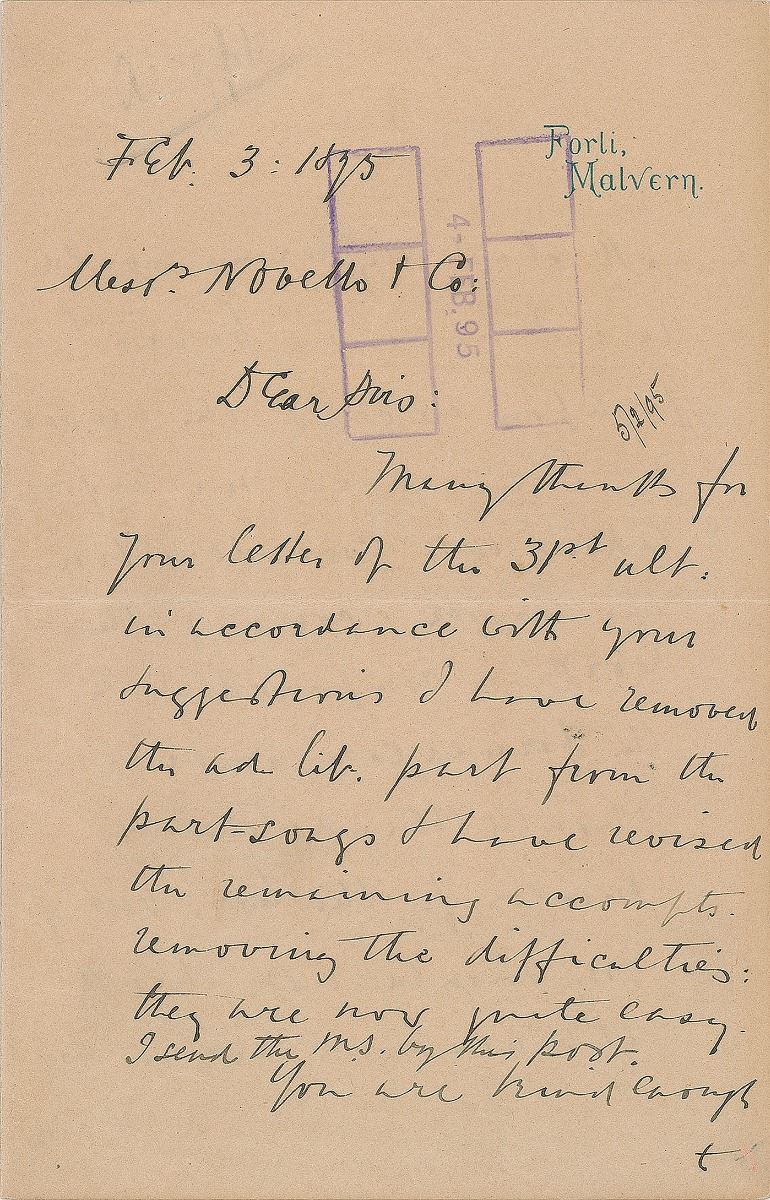 Feb. 3: 1895
Forli,
Malvern.
Messrs. Novello & Co:
4-FEB.95
Dear Sirs:
5/2/95
Many thanks for
your letter of the 31st ult:
in accordance with your
suggestions I have removed
the ad lib. part from the
part-songs & have revised
the remaining accompts.
removing the difficulties:
they are now quite easy.
I send the M.S. by this post.
You are kind enough
t